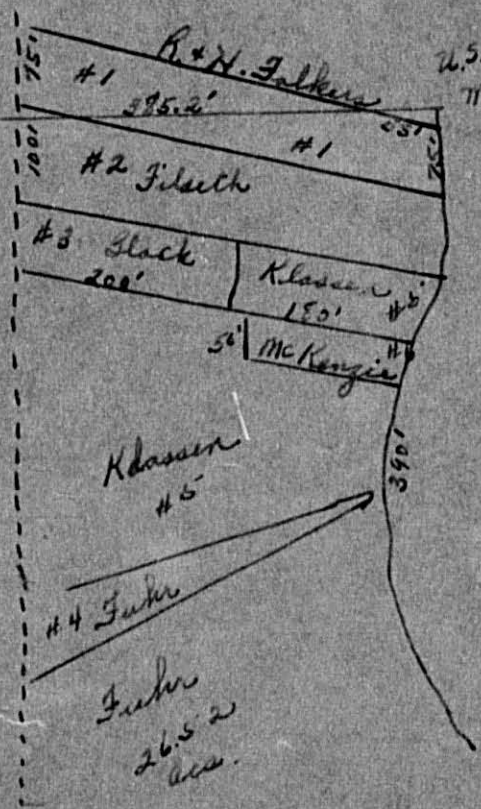 75'
#1
R. & H. Folkers
U.S.
385.2'
25'
75'
100'
#1
#2 Filseth
#3 Glock
200'
Klassen
#5
180'
56'
McKenzie
Klassen
#5
390'
#4 Fuhr
Fuhr
26.52
acs.